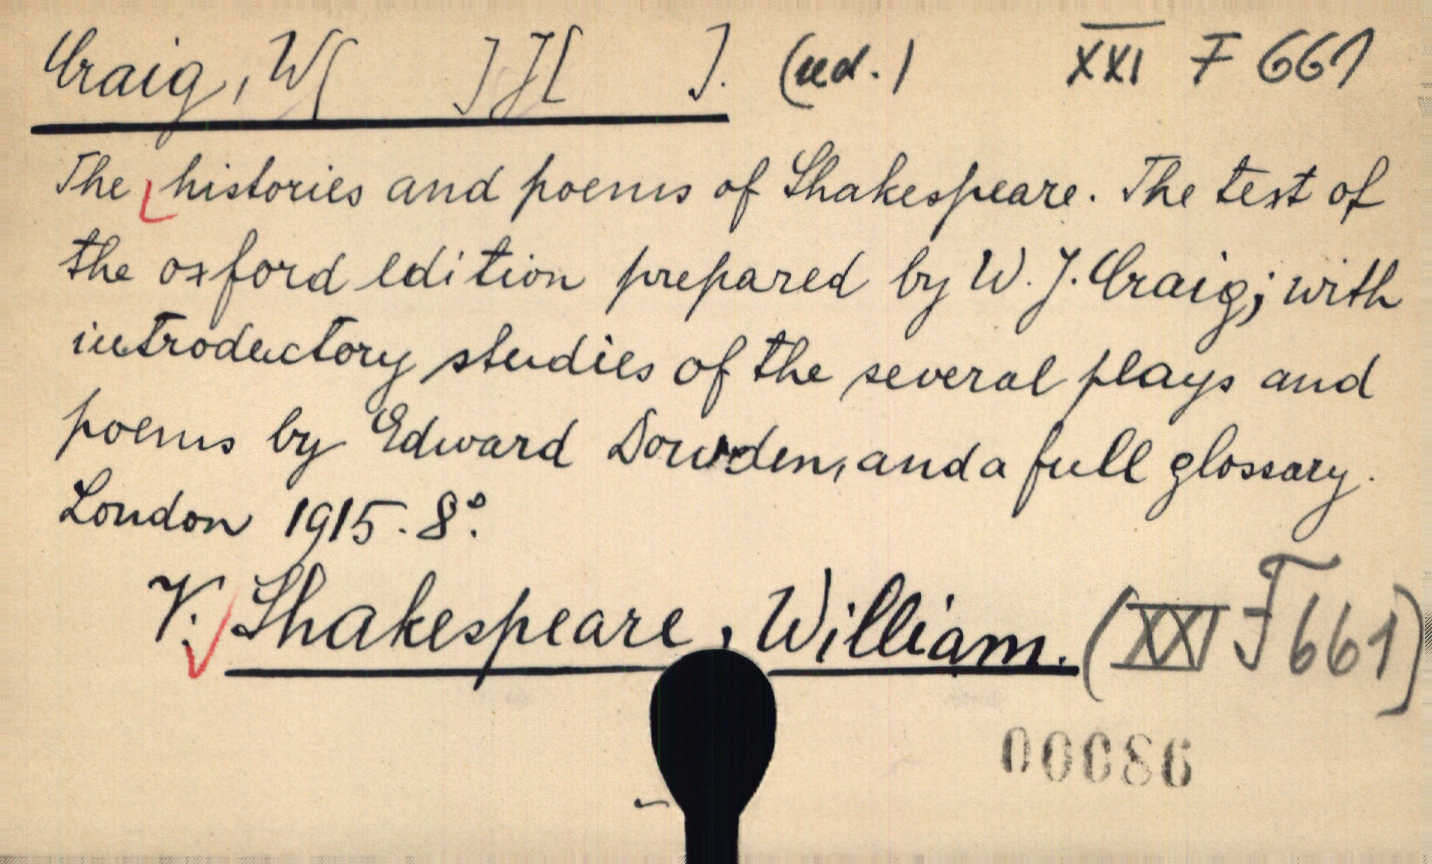 Craig, W[ ] J[ ]. (ed.) XXI F 661
The histories and poems of Shakespeare. The test of
the oxford edition prepared by W. J. Craig; with
introductory studies of the several plays and
poems by Edward Dowden, and a full glossary.
London 1915. 8°.
V. Shakespeare, William. (XXI F 661)
00086